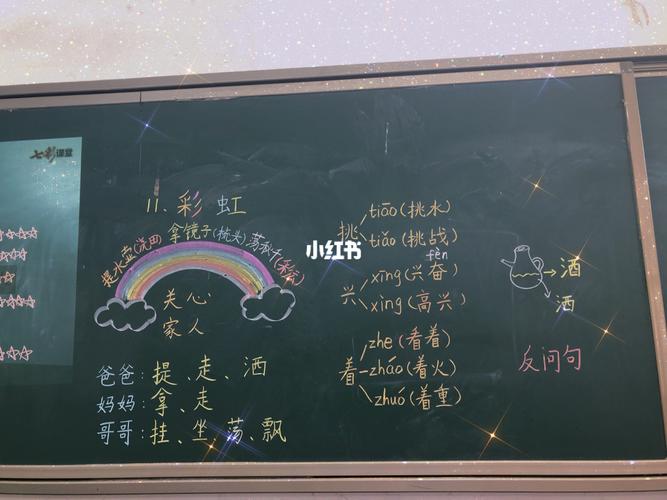 七彩课堂
11.彩虹
提水壶(浇田) 拿镜子(梳头) 荡秋千(彩云)
关心
家人
爸爸:提、走、洒
妈妈:拿、走
哥哥:挂、坐、荡、飘
小红书
挑
tiāo(挑水)
tiǎo(挑战)
兴
fèn
xīng(兴奋)
xìng(高兴)
着
zhe(看着)
zháo(着火)
zhuó(着重)
酒
洒
反问句